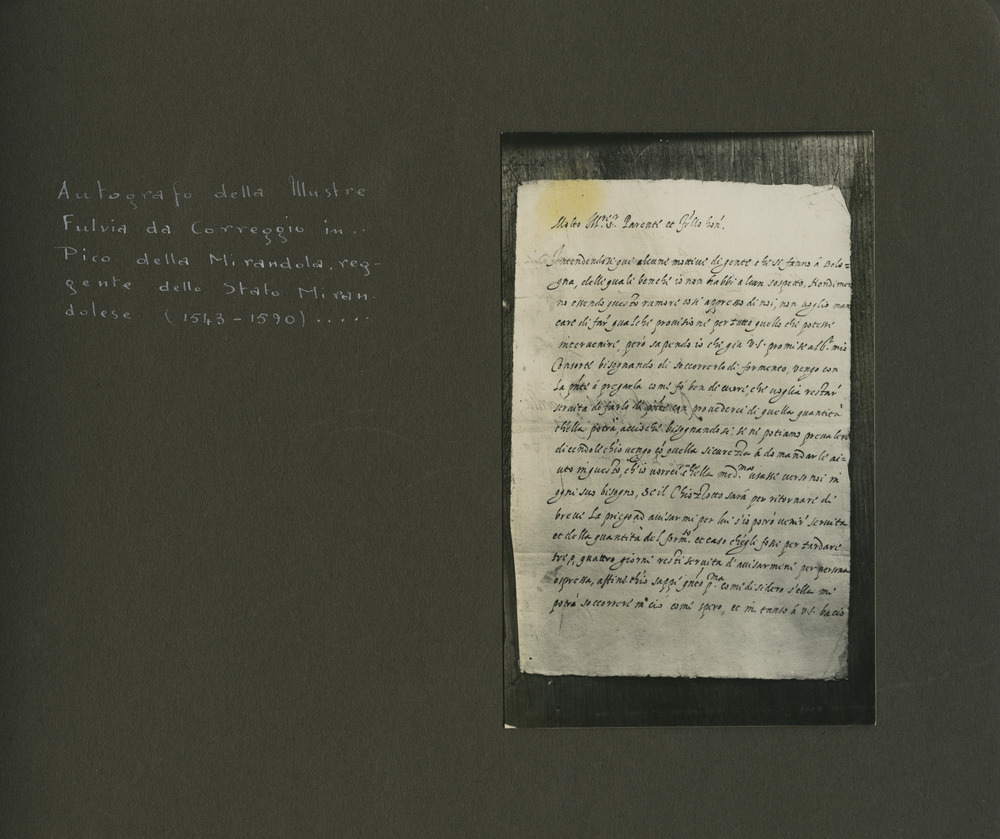 Autografo della Illustre
Fulvia da Correggio in..
Pico della Mirandola, reg-
gente dello Stato Miran-
dolese (1543-1590)......
Molto M.re S.r Parente et hon.
Intendendosi qui alcune mottive di gente che si fanno à Bolo=
gna, delle quali benche io non habbi alcun sospetto, Nondimen
no essendo questo rumore cosi appresso di noi, non voglio man
care di far qualche provisione per tutto quello che potesse
intervenire, però sapendo io che gia V.S. promise al mio
Consorte bisognando di soccorrerlo di formento, vengo con
la pnte à pregarla come fo ben di cuore, che voglia restar
servita di farlo con provederci di quella quantità
chella potrà, accioche bisognandosi, se ne potiamo prevalere
dicendole ch'io vengo cõ quella sicurezza à domandarle ai=
uto in questo, ch'io vorrei ch'ella med.ma usasse verso noi in
ogni suo bisogno, Se il sarà per ritornare di
breve La prego ad avisarmi per lui s'io potrò venir servita
et della quantità del form.to et caso ch'egli fosse per tardare
tre, ò quattro giorni resti servita d'avisarmene per persona
espressa, affine ch'io sappi come desidero s'ella mi
potrà soccorrere in ciò come spero, et in tanto à V.S. bacio